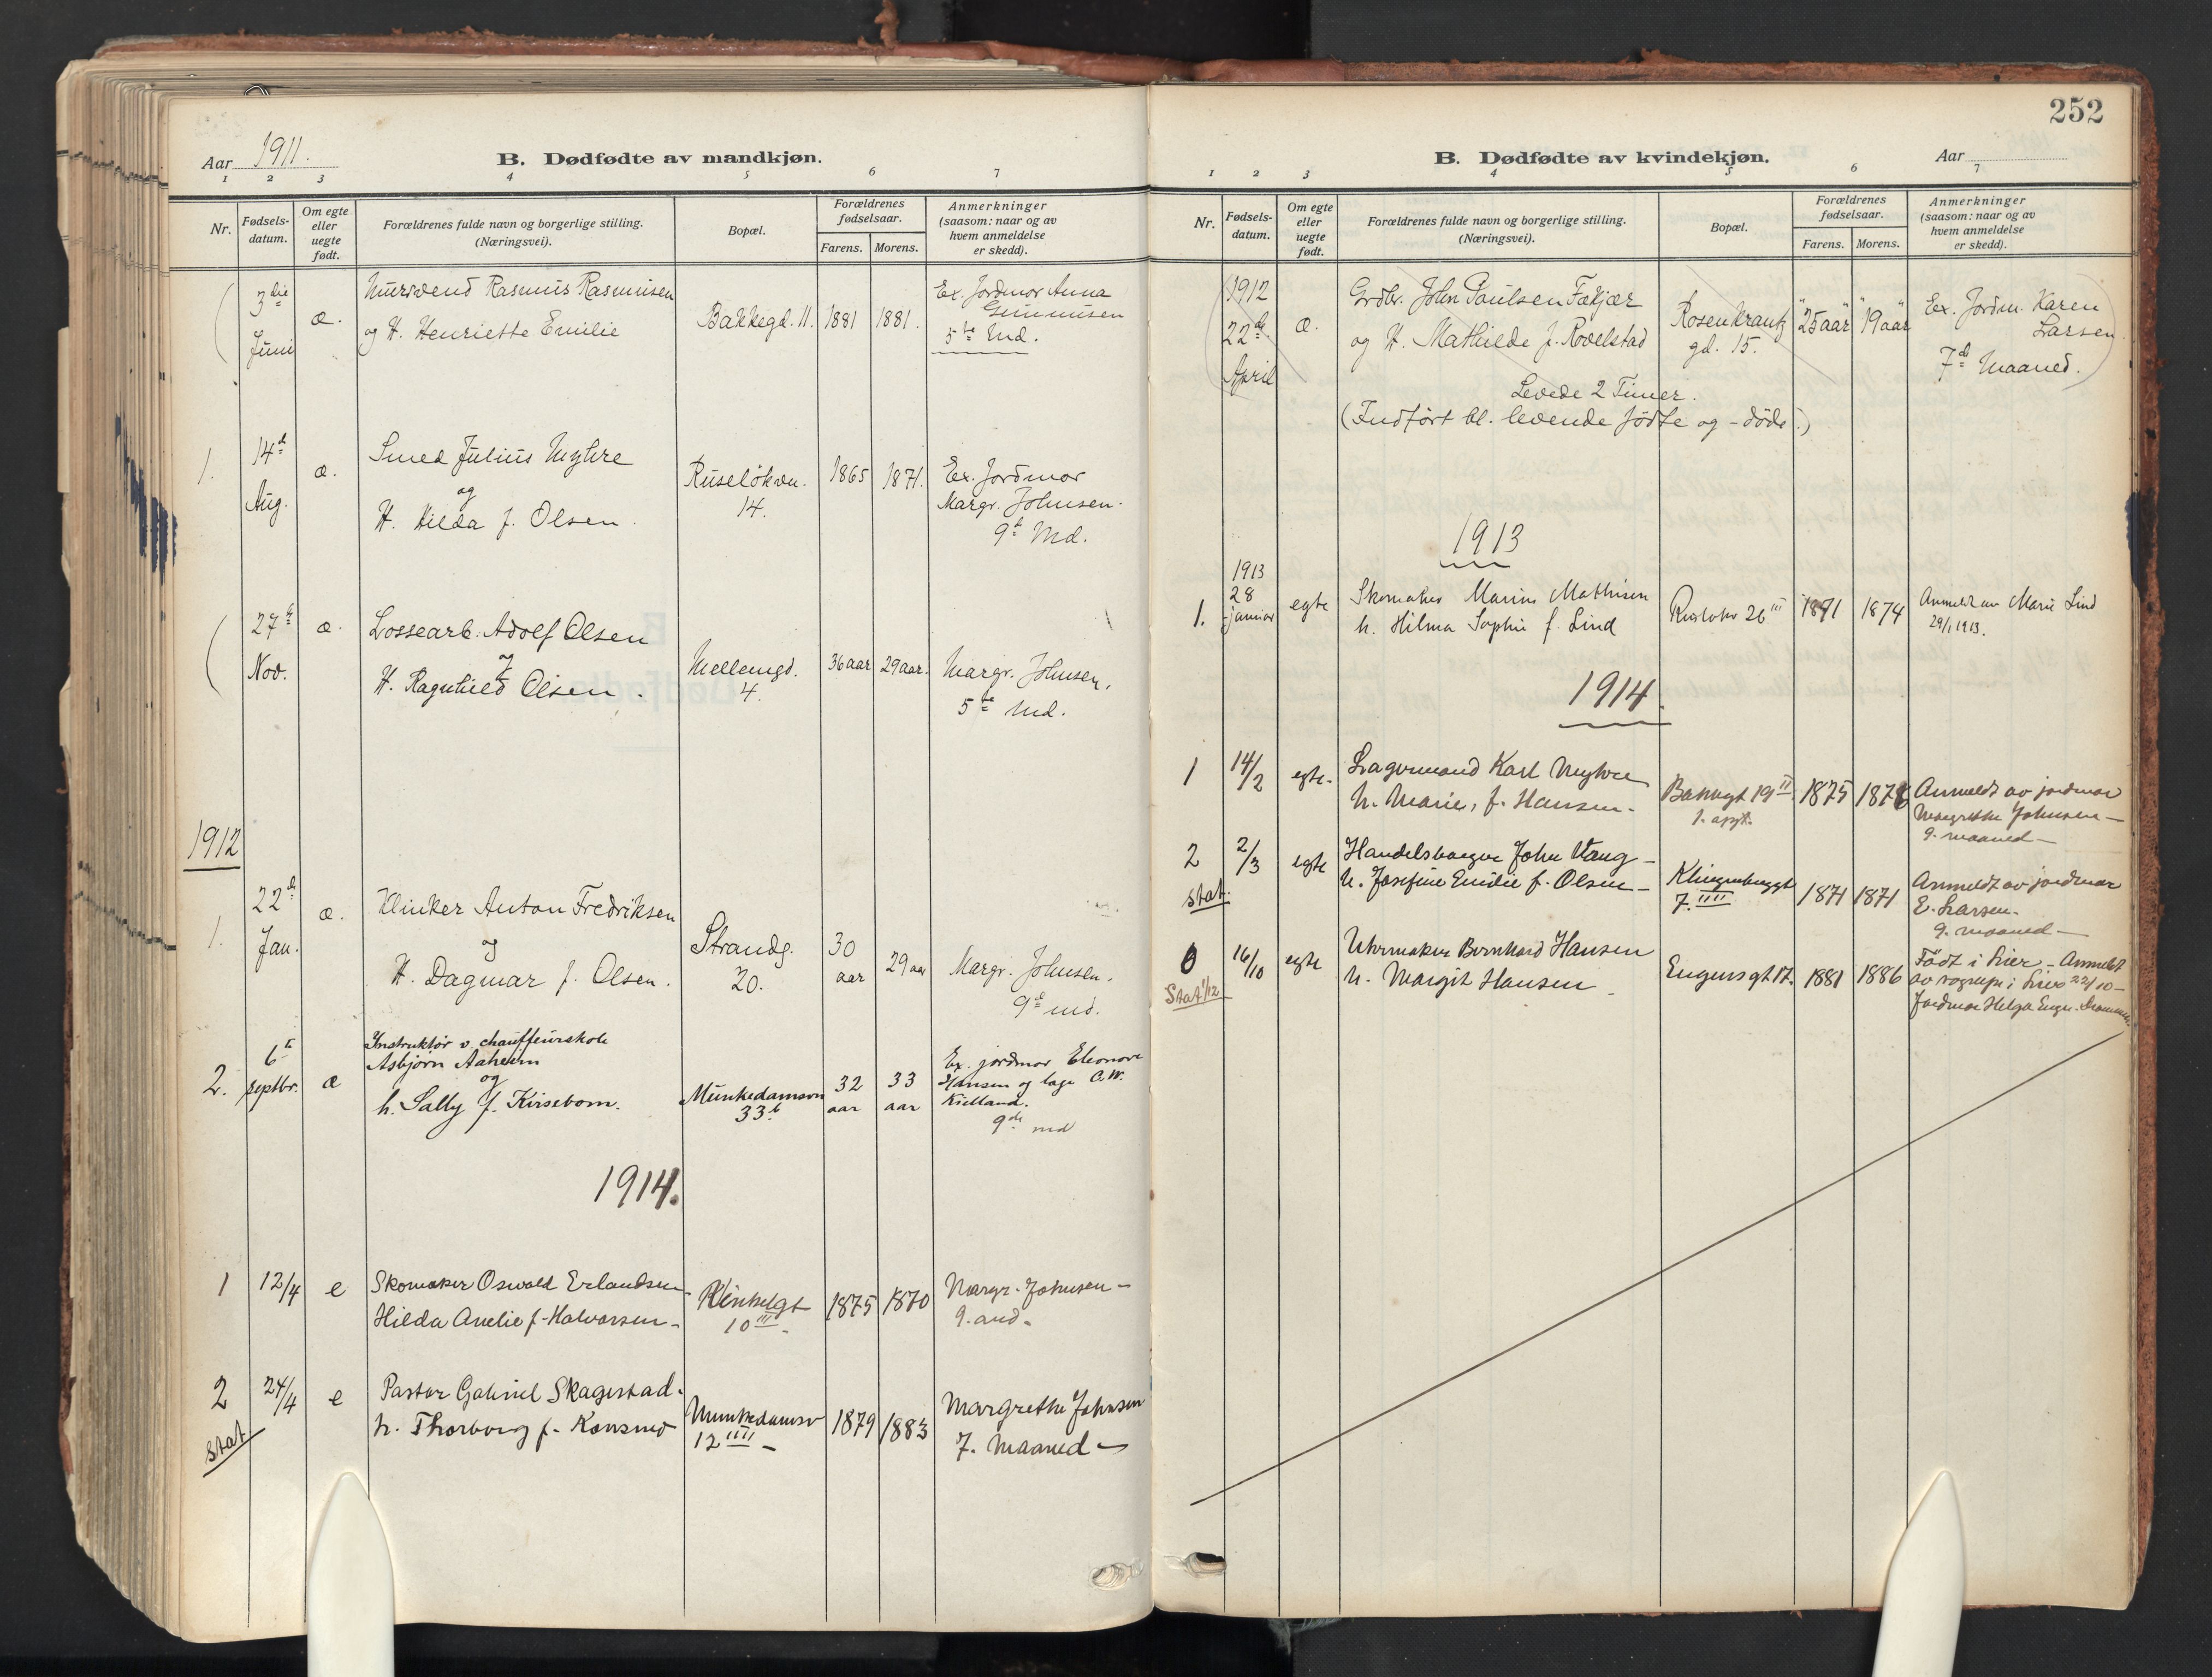 Aar 1911.
B. Dødfødte av mandkjøn.
1 2 3 4 5 6 7
Nr.
Fødsels-
datum.
Om egte
eller
uegte
født.
Forældrenes fulde navn og borgerlige stilling.
(Næringsvei).
Bopæl.
Forældrenes
fødselsaar.
Farens. Morens.
Anmerkninger
(saasom: naar og av
hvem anmeldelse
er skedd).
3die Juni
æ.
Mursvend Rasmus Rasmusen
og H. Henriette Emilie
Bakkegd. 11.
1881 1881.
Ex. Jordmor Anna
5te Md.
1.
14d Aug.
æ.
Smed Julius Myhre
og
H. Hilda f. Olsen.
Ruseløkvn.
14.
1865 1871.
Ex. Jordmor
Margr. Johnsen.
9d Md.
27d Nov.
æ.
Lossearb. Adolf Olsen
og
H. Ragnhild Olsen.
Mellemgd.
4.
36 aar 29 aar.
Margr. Johnsen.
5te Md.
1912
1.
22d Jan.
æ.
Klinker Anton Fredriksen
og
H. Dagmar f. Olsen.
Strandg.
20.
30 aar 29 aar
Margr. Johnsen.
9d md.
2.
6te septbr.
æ
Instruktør v. chauffeurskole
Asbjørn Aaheim
og
h. Sally f. Kirsebom.
Munkedamsvn
33b
32 aar 33 aar
Ex. jordmor Eleonore
Hansen og læge C.W.
Kielland.
9de md
1914.
1 12/4 e
Skomaker Oswald Erlandsen
Hilda Amelie f. Halvorsen
10 III
1875 1870
Margr. Johnsen
2 24/4 e
stat
Pastor Gabriel Skagestad
h. Thorborg f. Konsmo
Munkedamsv
12 IIII
1879 1883
Margrethe Johnsen
7. Maaned
252
B. Dødfødte av kvindekjøn.
Aar
1 2 3 4 5 6 7
Nr.
Fødsels-
datum.
Om egte
eller
uegte
født.
Forældrenes fulde navn og borgerlige stilling.
(Næringsvei).
Bopæl.
Forældrenes
fødselsaar.
Farens. Morens.
Anmerkninger
(saasom: naar og av
hvem anmeldelse
er skedd).
1912
22d April
æ.
Grdbr. John Paulsen Fækjær
og H. Mathilde f. Rovelstad
Rosenkrantz
gd. 15.
25 aar 19 aar
Ex. Jordm. Karen
Larsen.
7d Maaned.
Levede 2 Timer.
(Indført bl. levende fødte og - døde.)
1913
1.
1913
28
januar
egte
Skomaker Marius Mathisen
h. Hilma Sophie f. Lind
Ruseløkv 26 III
1871 1874
Anmeldt av Marie Lind
29/1 1913.
1914.
1 14/2 egte
Lagermand Karl Myhre
h. Marie, f. Hansen
Bakkegt 19 II
1. opg.
1875 1878
Anmeldt av jordmor
Margrethe Johnsen
9. maaned
2 2/3 egte
stat.
Handelsborger John Vang
h. Josefine Emilie f. Olsen
Klingenberggt
7. IIII
1871 1871
Anmeldt av jordmor
E. Larsen
9. maaned
0 16/10 egte
Stat 1/12
Uhrmaker Bernhard Hansen
h. Margit Hansen
Engensgt 17.
1881 1886
Født i Lier - Anmeldt
av sognepr. i Lier 22/10
Jordmor Helga Enger. Drammen